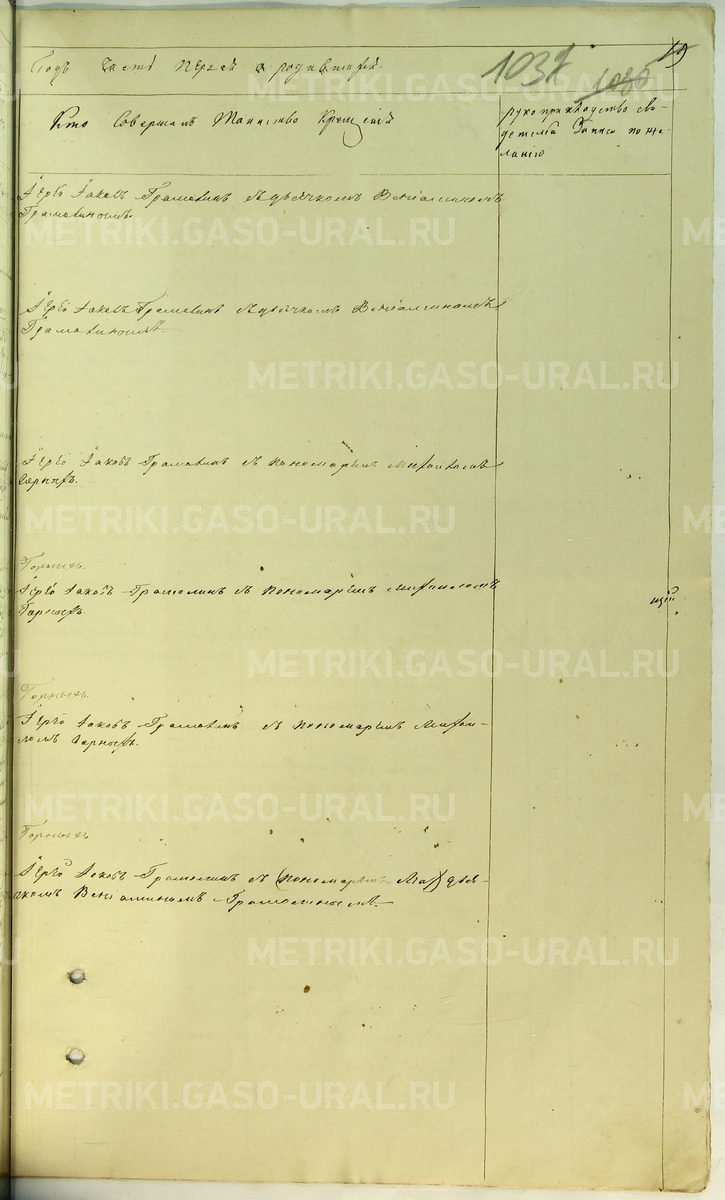 Годъ часть первая о родившихся.
1037
19
Кто совершалъ Таинство Крещенія
рукоприкладство сви-
детелей записи по же-
ланію
Іерей Іаковъ Грамолинъ съ дьячкомъ Веніаминомъ
Грамолинымъ.
Іерей Іаковъ Грамолинъ съ дьячкомъ Веніаминомъ
Грамолинымъ
Іерей Іаковъ Грамолинъ съ пономаремъ Михаиломъ
Горныхъ.
Іерей Іаковъ Грамолинъ съ пономаремъ Михаиломъ
Горныхъ.
Іерей Іаковъ Грамолинъ съ пономаремъ Михаи-
ломъ Горныхъ.
Іерей Іаковъ Грамолинъ съ (пономаремъ Мих) дья-
чкомъ Веніаминомъ Грамолинымъ.
METRIKI.GASO-URAL.RU